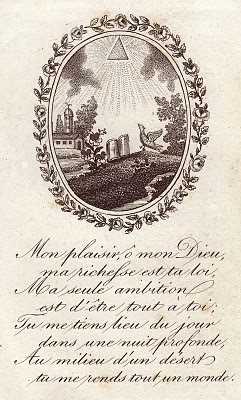 Mon plaisir, ô mon Dieu,
ma richesse est ta loi,
Ma seule ambition
est d'être tout à toi;
Tu me tiens lieu du jour
dans une nuit profonde,
Au milieu d'un désert
tu me rends tout un monde.